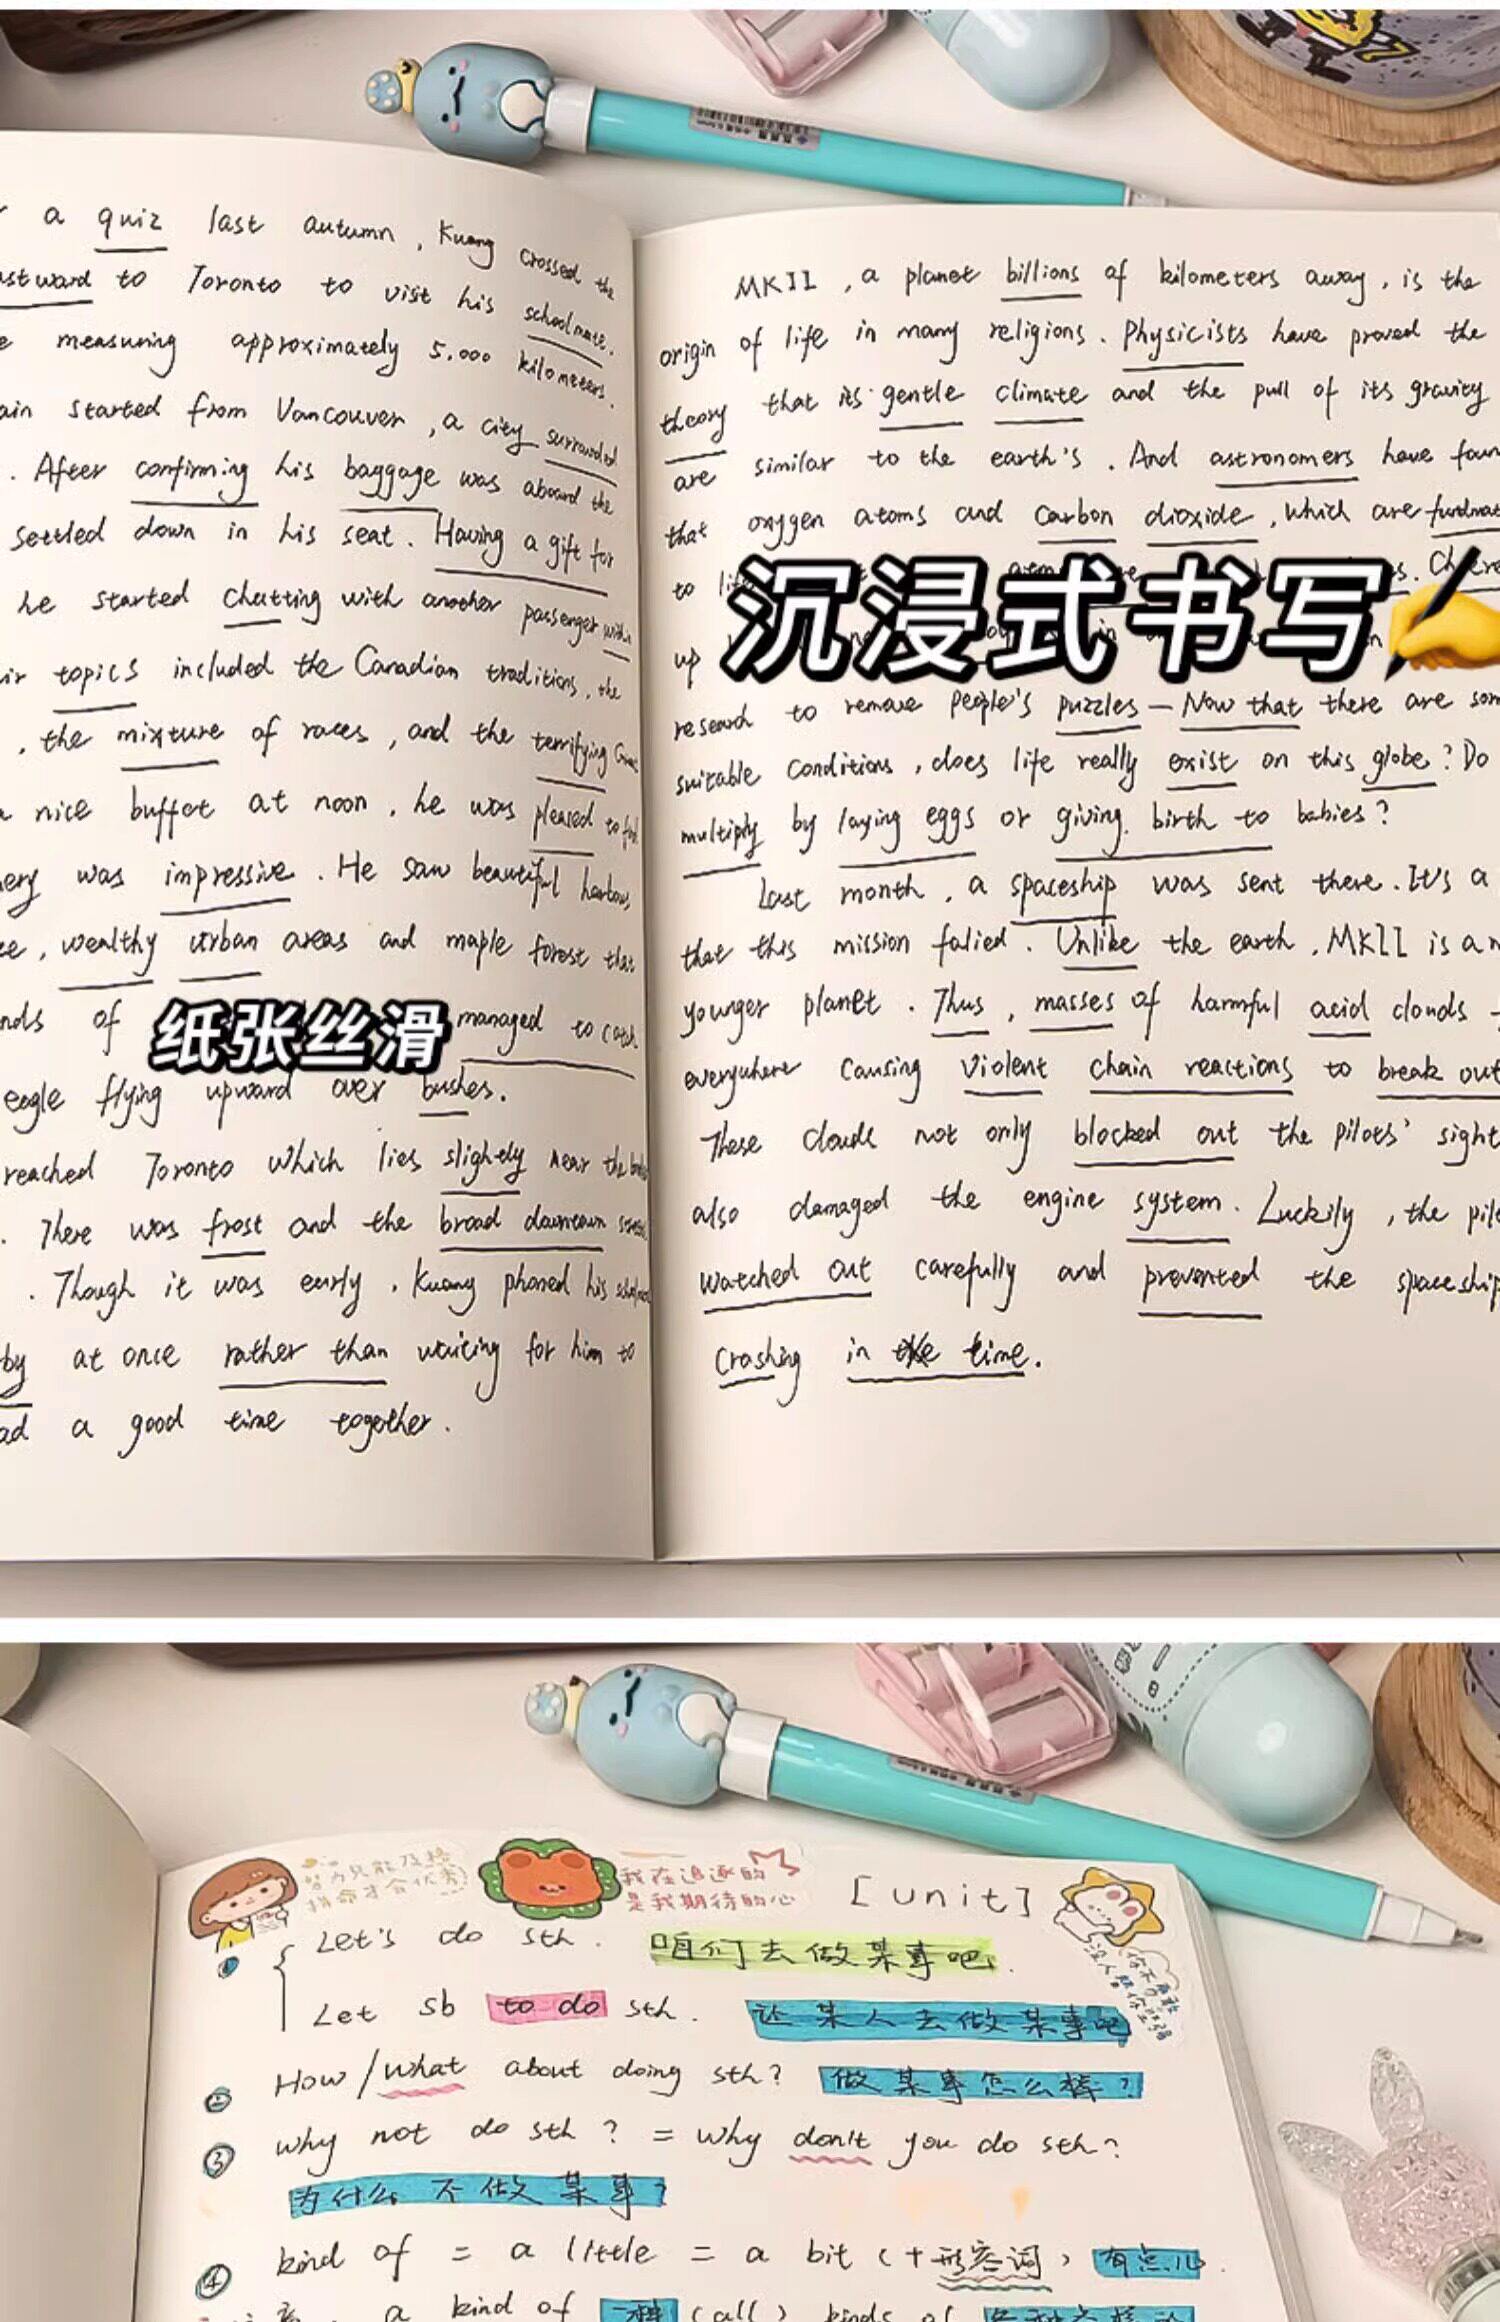 a quiz last autumn, Kuang crossed the
to Toronto to visit his schoolmate.
measuring approximately 5,000 kilometers.
started from Vancouver, a city surrouded
. After confirming his baggage was aboard the
settled down in his seat. Having a gift for
he started chatting with another passenger within
topics included the Canadian traditions, the
, the mixture of races, and the terrifying
nice buffet at noon, he was pleased to
was impressive. He saw beautiful harbour,
, wealthy urban areas and maple forest that
of managed to catch
纸张丝滑
eagle flying upward over bushes.
reached Toronto which lies slightly near the
. There was frost and the broad downtown
. Though it was early, Kuang phoned his
by at once rather than waiting for him to
a good time together.
MKII, a planet billions of kilometers away, is the
origin of life in many religions. Physicists have proved the
theory that its gentle climate and the pull of its gravity
are similar to the earth's. And astronomers have
that oxygen atoms and carbon dioxide, which are
to
沉浸式书写✍
up
research to remove people's puzzles — Now that there are
suitable conditions, does life really exist on this globe? Do
multiply by laying eggs or giving birth to babies?
Last month, a spaceship was sent there. It's a
that this mission falied. Unlike the earth, MKII is a
younger planet. Thus, masses of harmful acid clouds
everywhere causing violent chain reactions to break out
These clouds not only blocked out the pilots' sight
also damaged the engine system. Luckily, the
watched out carefully and prevented the spaceship
crashing in time.
努力只能及格
拼命才会优秀
我在追逐的
是我期待的心
[unit]
Let's do sth. 咱们去做某事吧.
Let sb to do sth. 让某人去做某事吧
② How/what about doing sth? 做某事怎么样?
③ why not do sth? = why don't you do sth?
为什么不做某事?
④ kind of = a little = a bit (+形容词) 有点儿
a kind of 一种 (all) kinds of